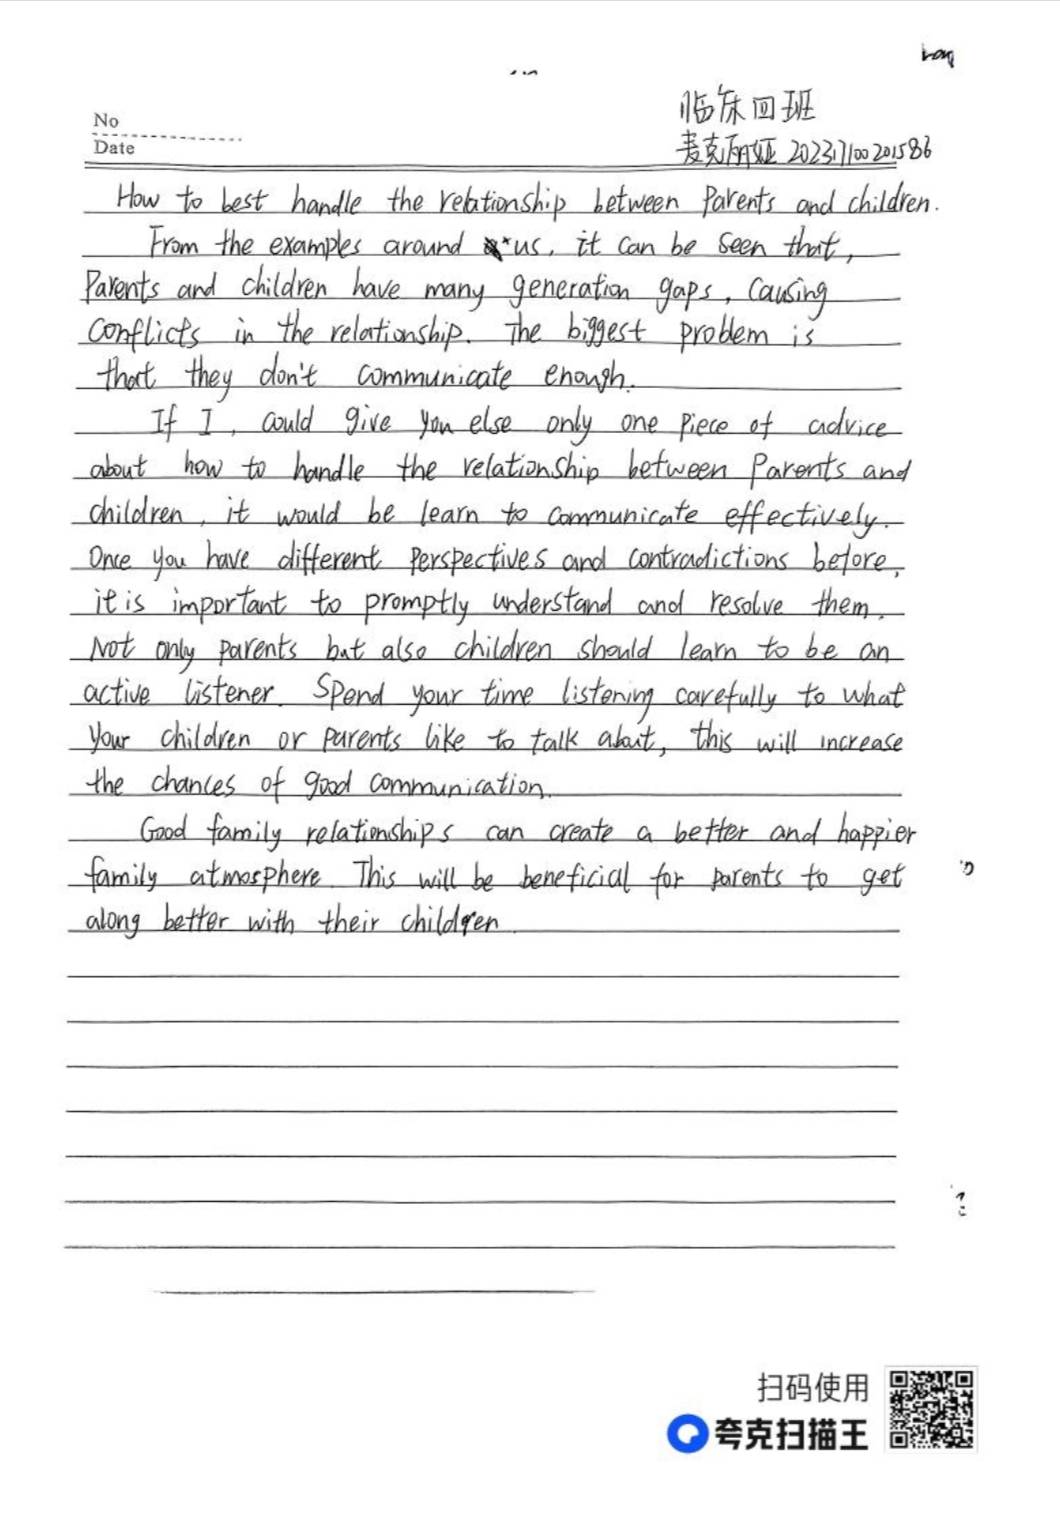 No
Date
临床四班
麦克丽娅 202317100201586
How to best handle the relationship between Parents and children.
From the examples around us, it can be seen that,
Parents and children have many generation gaps, causing
conflicts in the relationship. The biggest problem is
that they don't communicate enough.
If I, could give you else only one piece of advice
about how to handle the relationship between Parents and
children, it would be learn to communicate effectively.
Once you have different perspectives and contradictions before,
it is important to promptly understand and resolve them.
Not only parents but also children should learn to be an
active listener. Spend your time listening carefully to what
your children or parents like to talk about, this will increase
the chances of good communication.
Good family relationships can create a better and happier
family atmosphere. This will be beneficial for parents to get
along better with their children
扫码使用
夸克扫描王